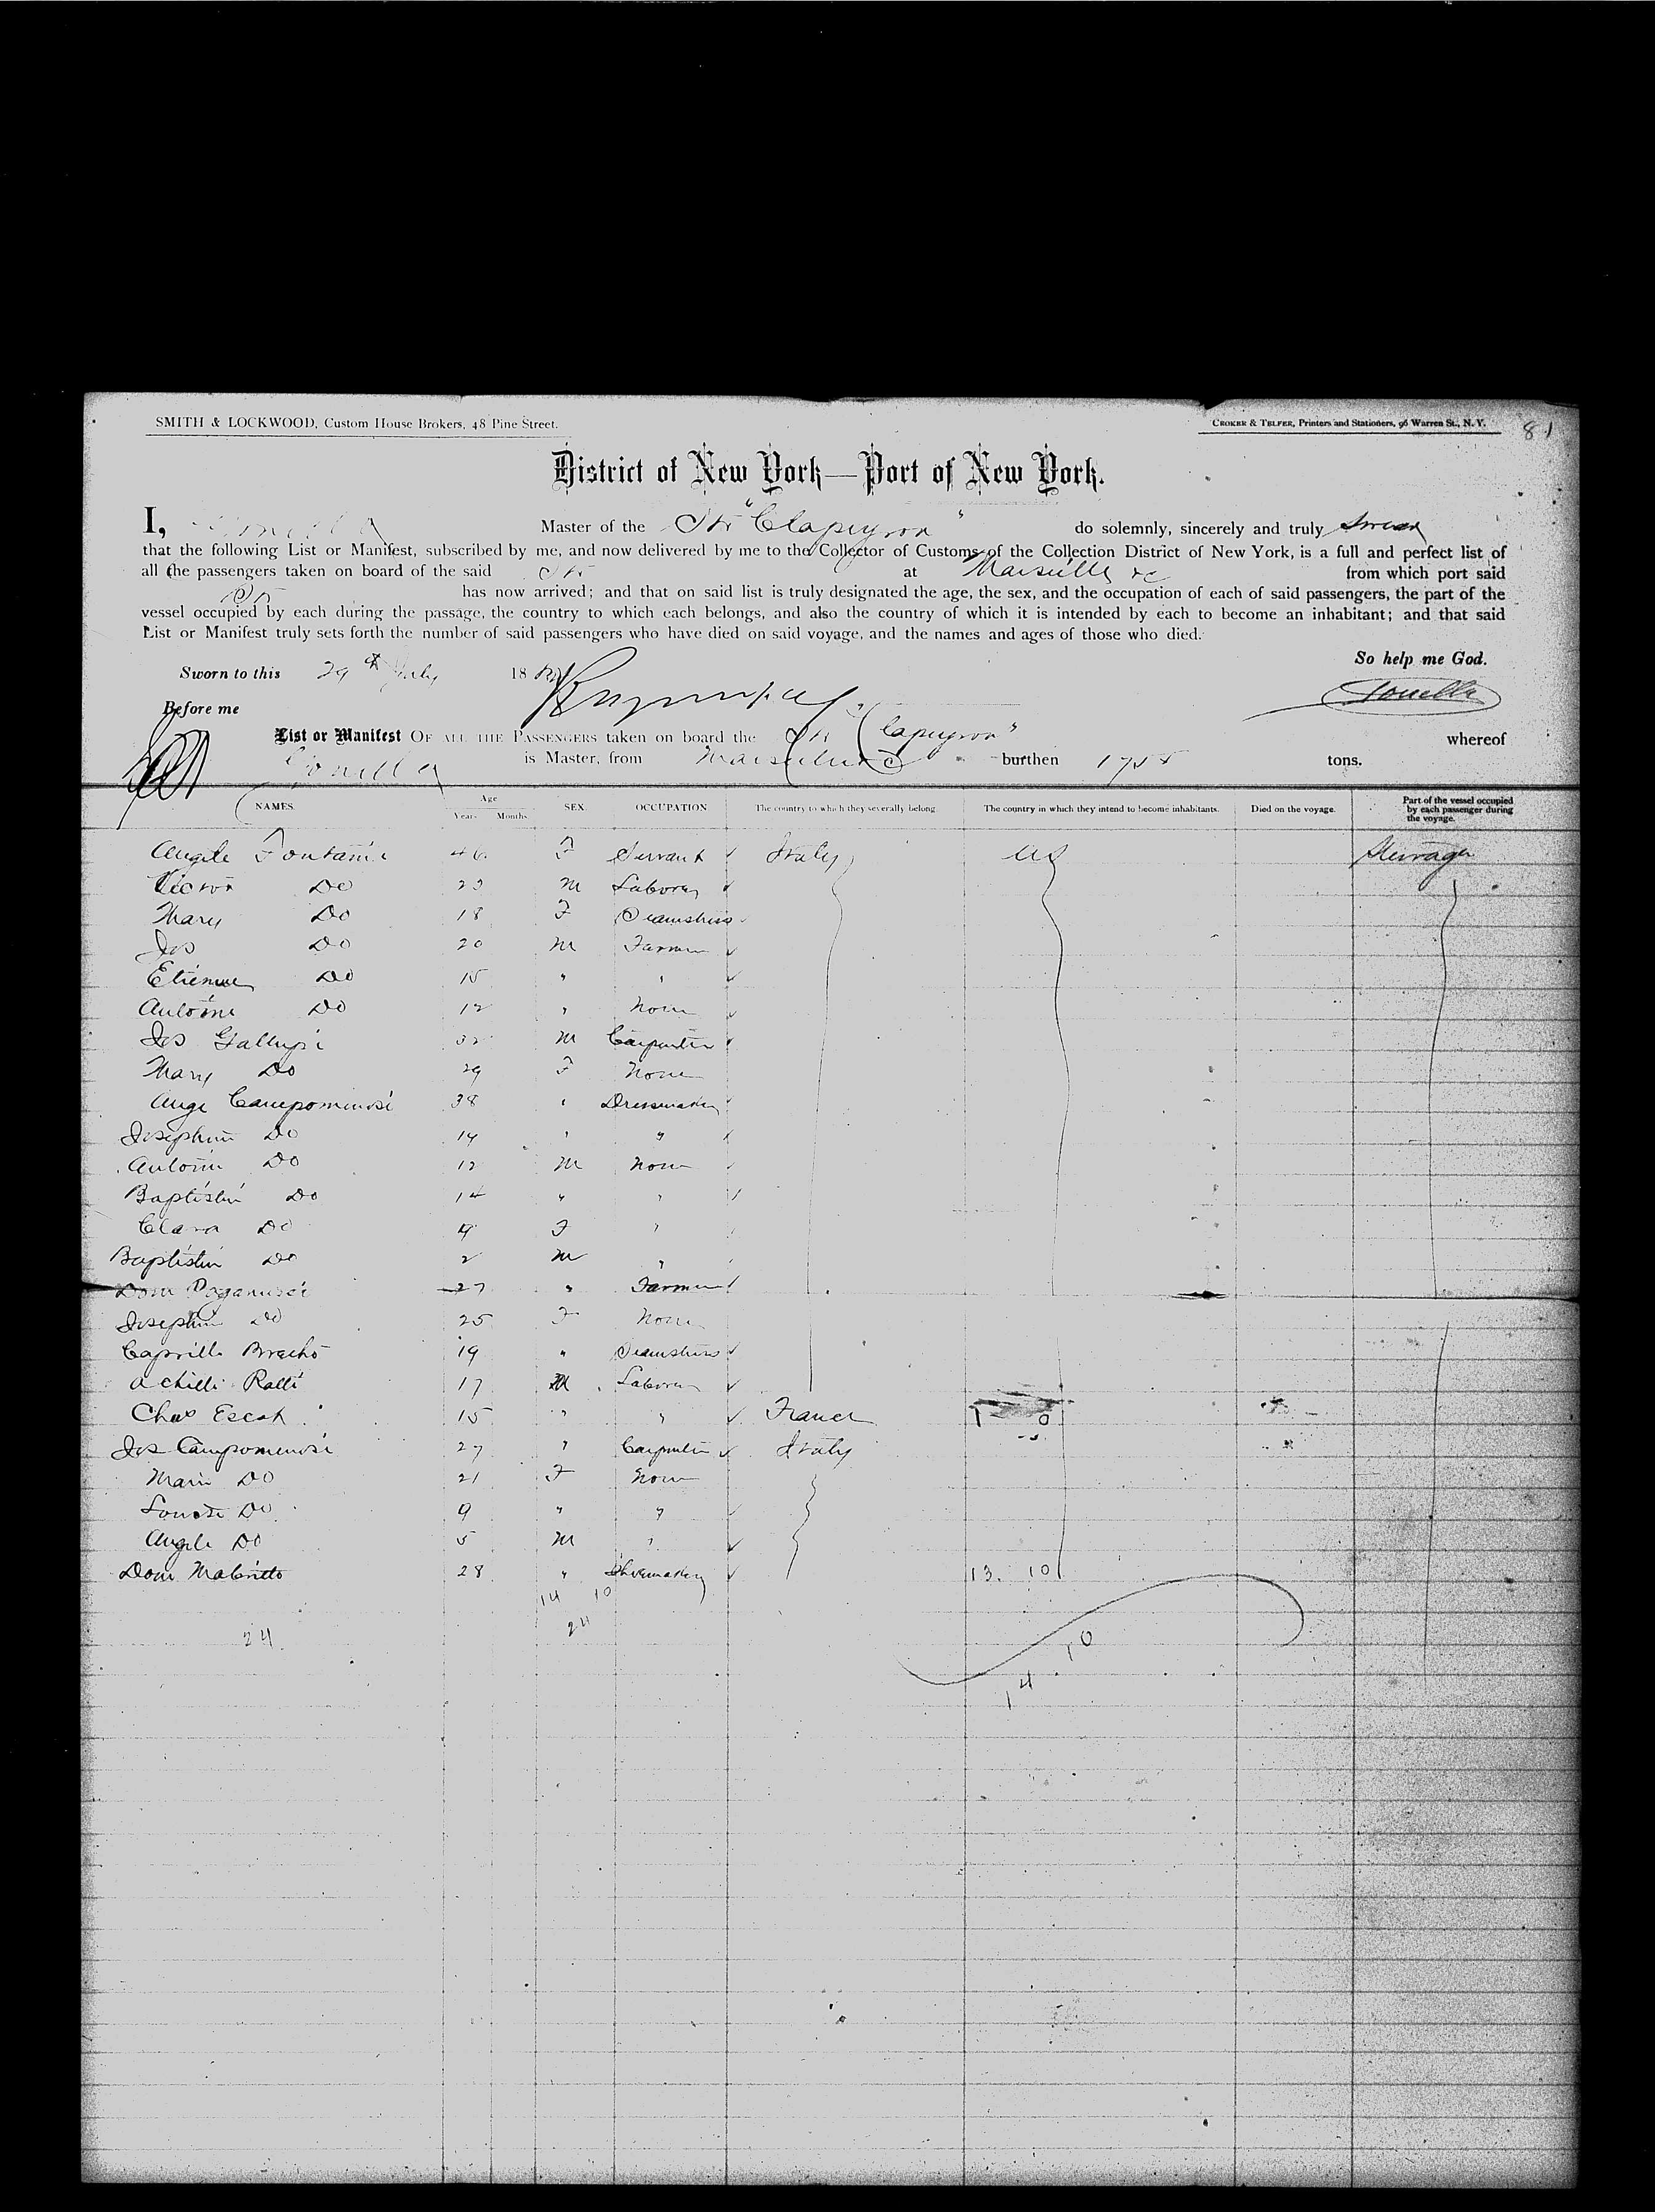 SMITH & LOCKWOOD, Custom House Brokers, 48 Pine Street.
CROKER & TELFER, Printers and Stationers, 96 Warren St., N. Y. 81
District of New York—Port of New York.
I, Master of the Str "Clapeyron" do solemnly, sincerely and truly swear
that the following List or Manifest, subscribed by me, and now delivered by me to the Collector of Customs of the Collection District of New York, is a full and perfect list of
all the passengers taken on board of the said Str at Marseille &c from which port said
Str has now arrived; and that on said list is truly designated the age, the sex, and the occupation of each of said passengers, the part of the
vessel occupied by each during the passage, the country to which each belongs, and also the country of which it is intended by each to become an inhabitant; and that said
List or Manifest truly sets forth the number of said passengers who have died on said voyage, and the names and ages of those who died.
So help me God.
Sworn to this 29th July 18
Before me
List or Manifest OF ALL THE PASSENGERS taken on board the Str "Clapeyron" whereof
is Master, from Marseille &c burthen 1758 tons.
NAMES. Age Years Months SEX. OCCUPATION The country to which they severally belong. The country in which they intend to become inhabitants. Died on the voyage. Part of the vessel occupied by each passenger during the voyage.
Angele Fontanie 46 F Servant Italy US Steerage
Victor Do M Labourer
Mary Do 18 F Seamstress
Jos Do 20 M Farmer
Etienne Do 15 " "
Antoine Do 12 " None
Jos Gallupi 32 M Carpenter
Mary Do 29 F None
Ange Campomenosi 38 " Dressmaker
Josephine Do 14 " "
Antoine Do 12 M None
Baptistin Do 14 " "
Clara Do 9 F "
Baptistin Do 2 M "
Dom Paganucci 27 " Farmer
Josephine Do 25 F None
19 " Seamstress
Achille Ratti 17 M Laborer
Chas Escot 15 " " France 1 0
Jos Campomenosi 27 " Carpenter Italy
Marie Do 21 F None
Louise Do 9 " "
Angele Do 5 M "
Dom 28 " Shoemaker 13. 10
14 10
24
24.
14. 10